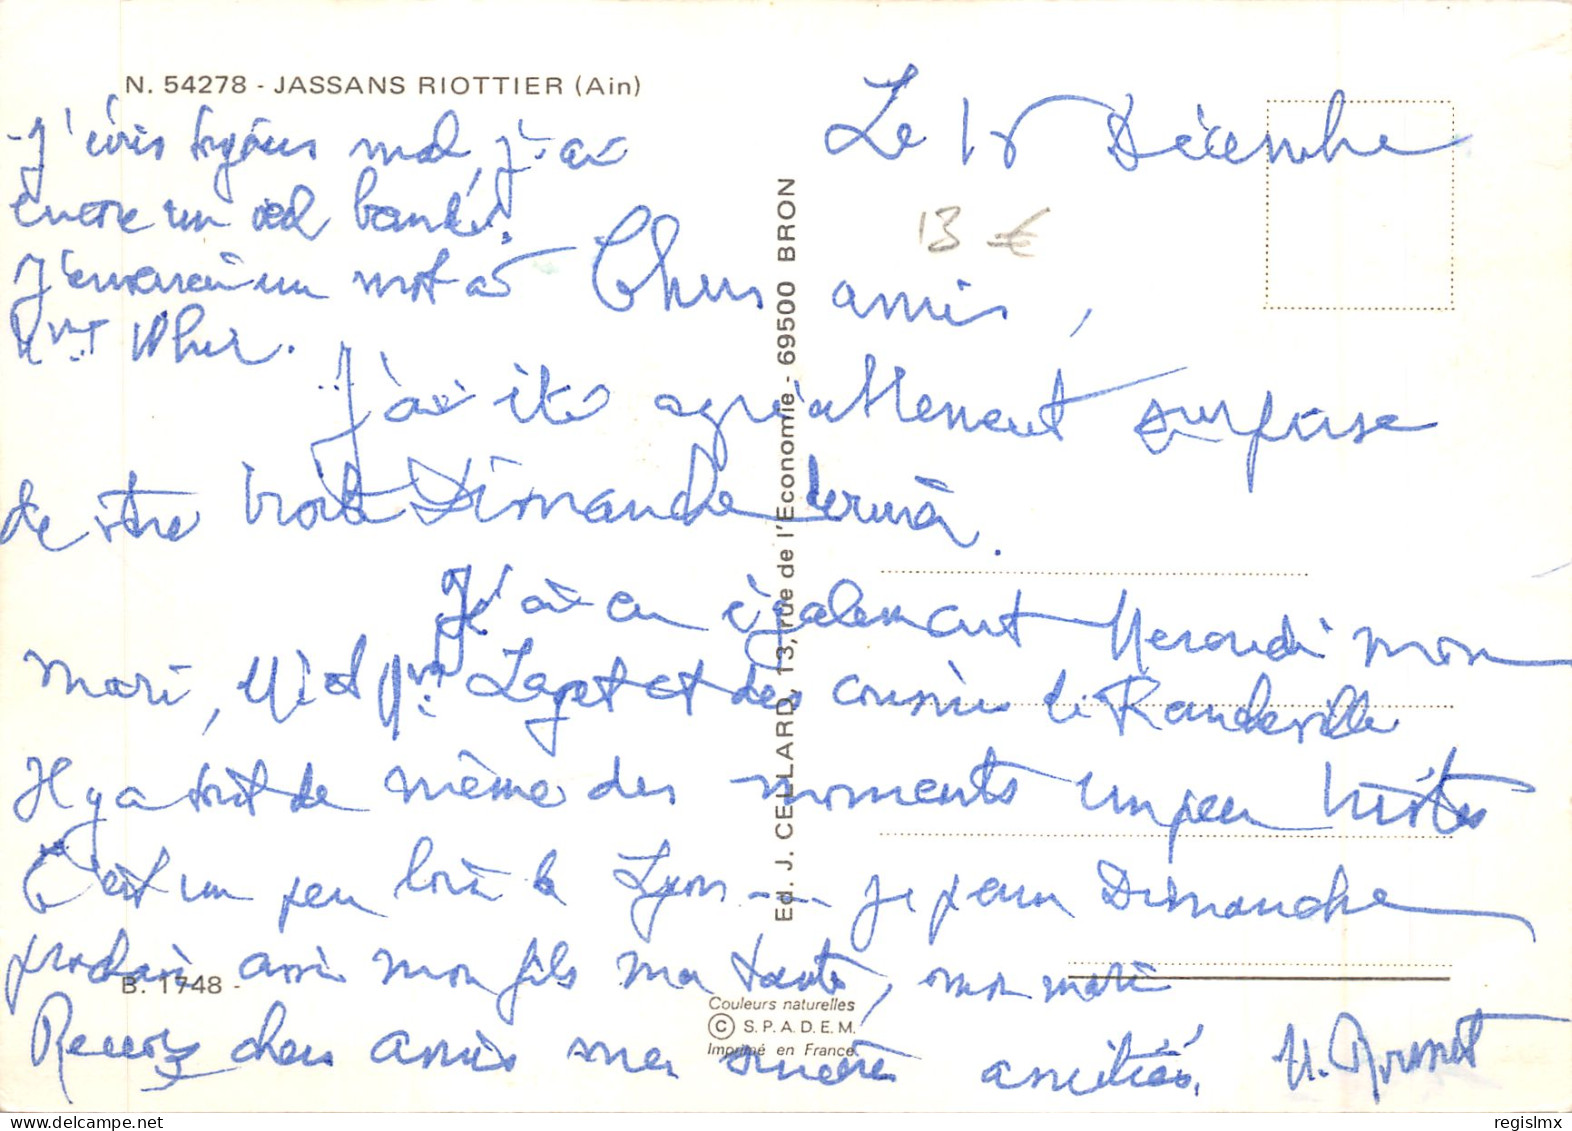 N. 54278 - JASSANS RIOTTIER (Ain)
Le 15 Décembre
13 €
Chers amis,
J'ai été agréablement surprise
de votre visite Dimanche dernier.
J'ai eu également Mercredi mon
mari, Mr et Mme et des cousins de Randeville
Il y a tout de même des moments un peu tristes
C'est un peu loin de Lyon --- je peux Dimanche
prochain avoir mon fils ma tante, mon mari
Recevez chers amis mes sincères amitiés.
J'écris toujours mal, j'ai
encore un œil bandé.
J'enverrai un mot à
Mme
B. 1748 -
Ed. J. CELLARD, 13, rue de l'Economie - 69500 BRON
Couleurs naturelles
© S.P.A.D.E.M.
Imprimé en France
regislmx